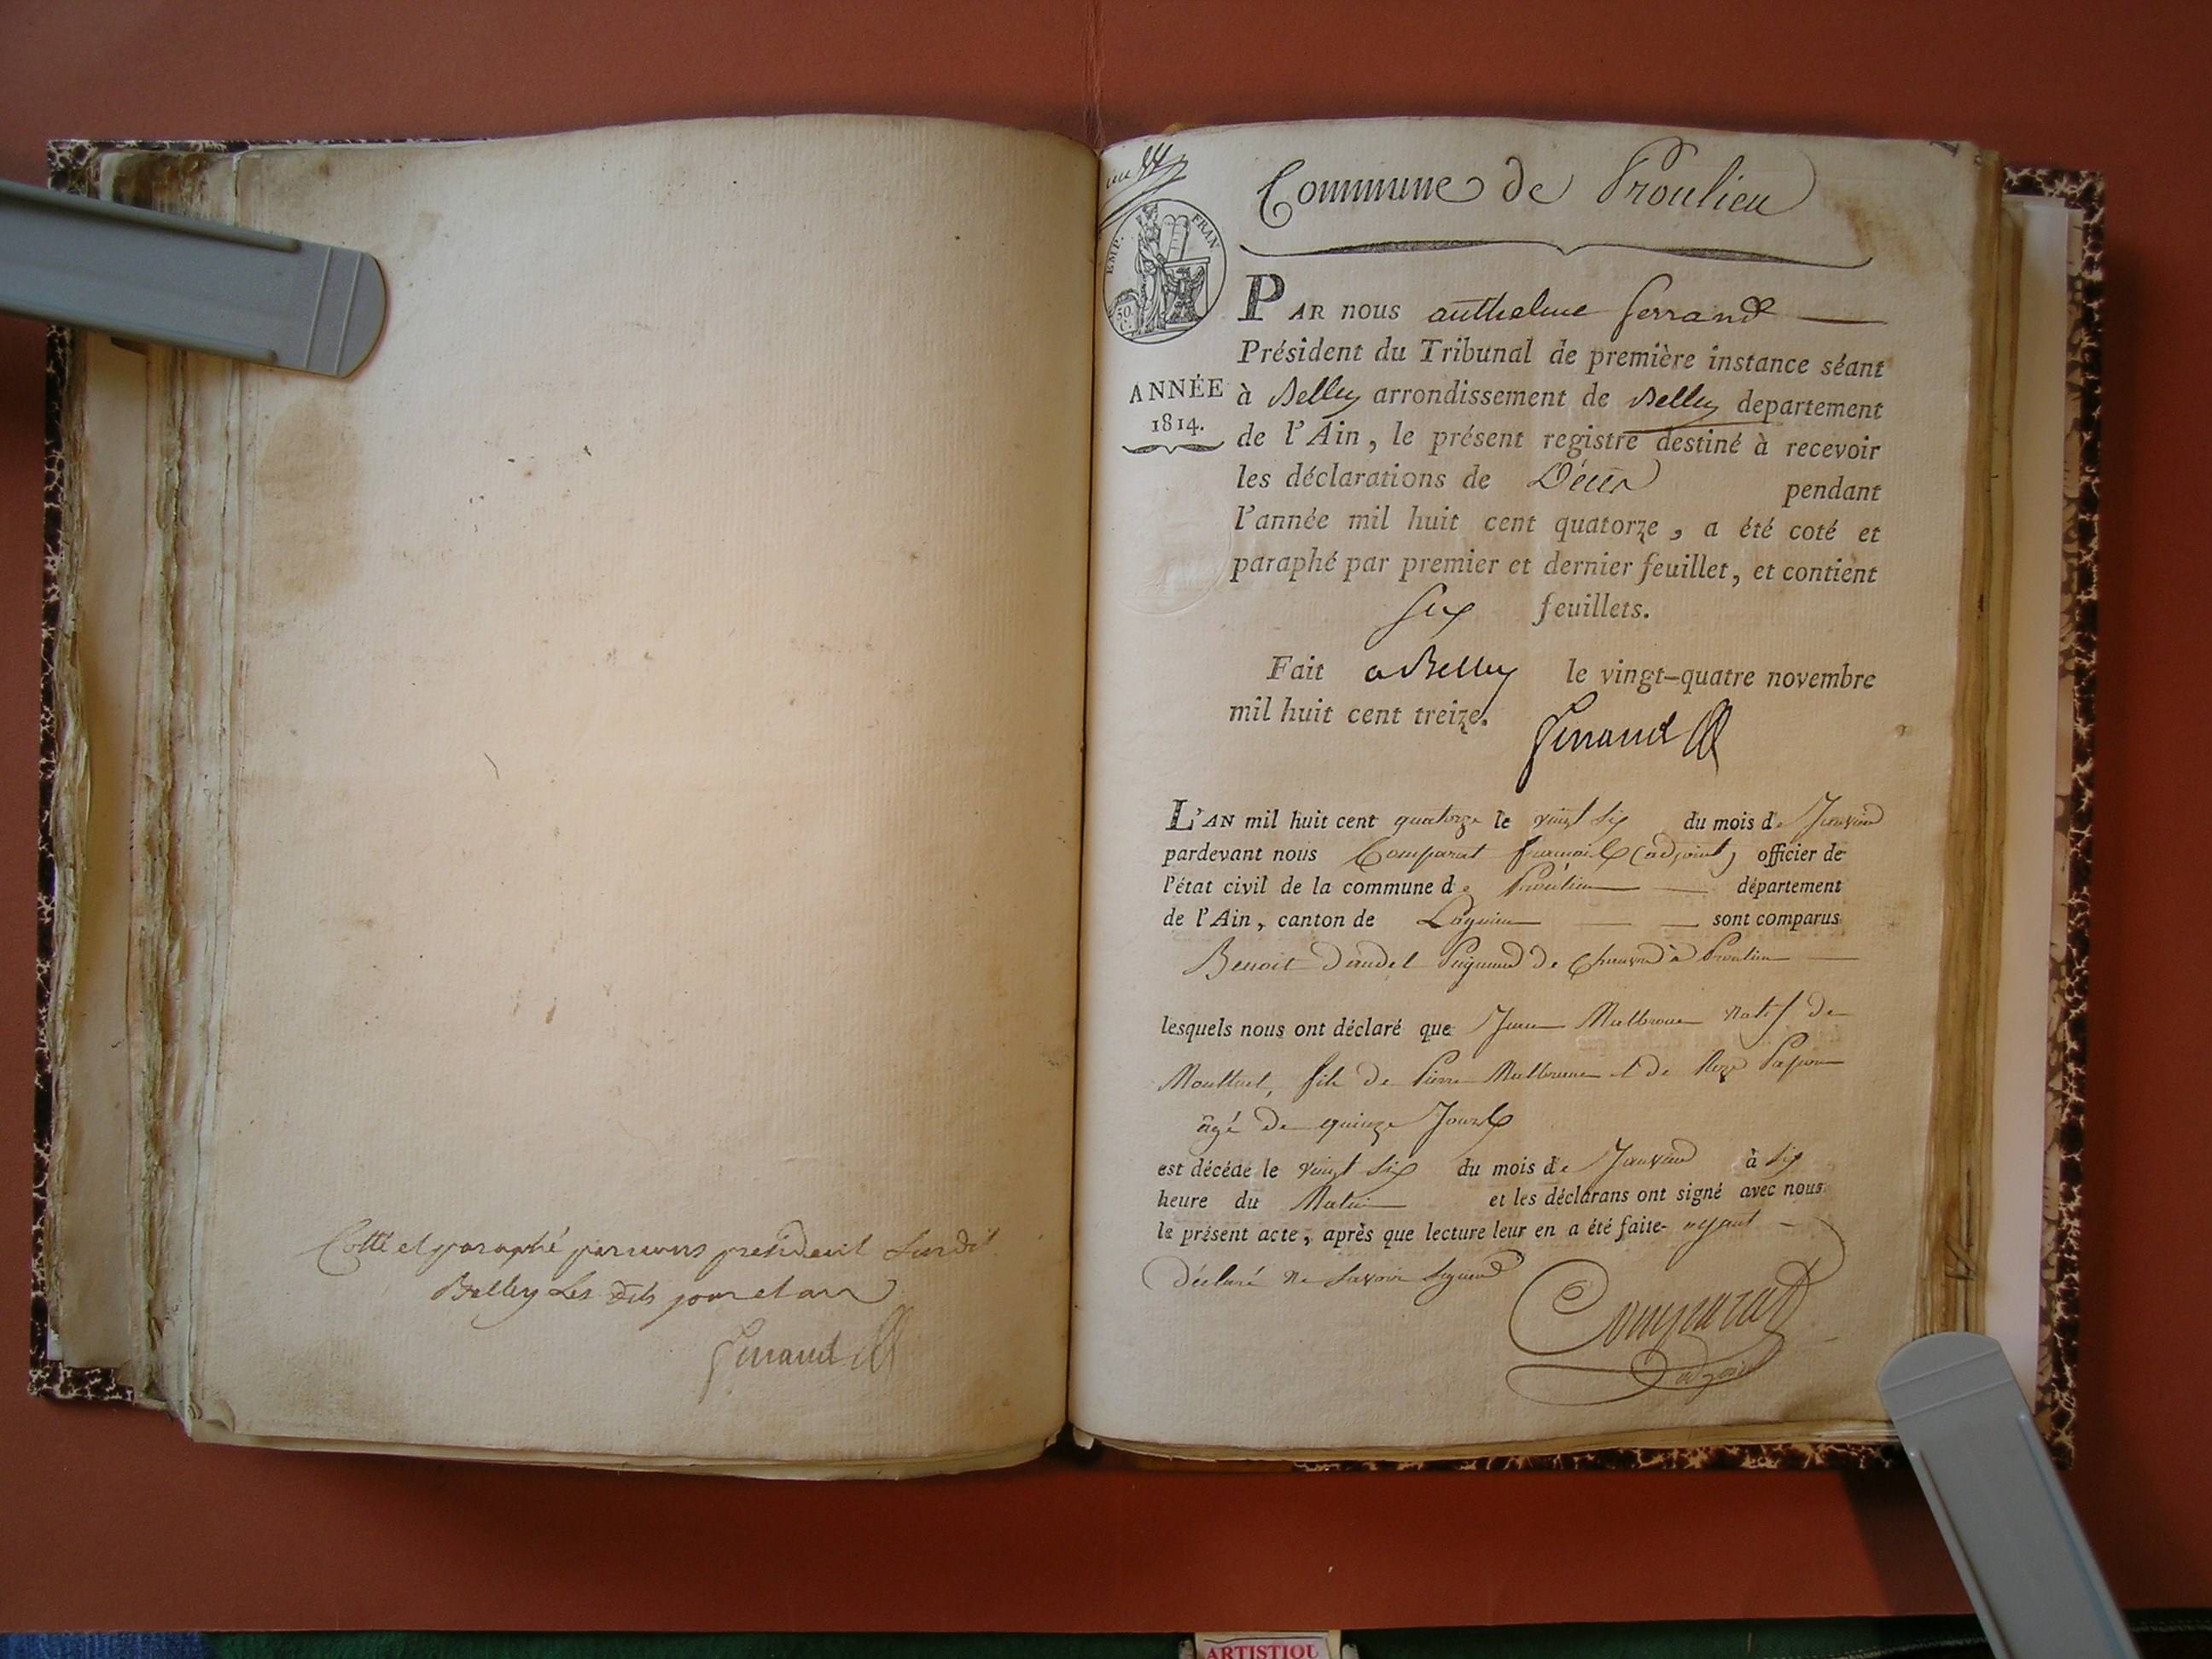 Cotté et paraphé par nous president susdit
Belley les dits jour et an
Ferrand
Commune de Proulieu
EMP. FRAN
50 C.
ANNÉE
1814.
PAR nous anthelme ferrand
Président du Tribunal de première instance séant
à Belley arrondissement de Belley departement
de l'Ain, le présent registre destiné à recevoir
les déclarations de Décès pendant
l'année mil huit cent quatorze, a été coté et
paraphé par premier et dernier feuillet, et contient
six feuillets.
Fait a Belley le vingt-quatre novembre
mil huit cent treize.
Ferrand
L'AN mil huit cent quatorze le vingt six du mois de Janvier
pardevant nous Comparat francois (adjoint) officier de
l'état civil de la commune de Proulieu département
de l'Ain, canton de Lagnieu sont comparus
Benoit Daudet Peigneur de Chanvre à Proulieu
lesquels nous ont déclaré que Jean natif de
Montluel, fils de Pierre et de
âgé de quinze Jours
est décédé le vingt six du mois de Janvier à six
heure du Matin et les déclarans ont signé avec nous
le présent acte, après que lecture leur en a été faite ayant
déclaré ne savoir signer
Comparat
adjoint
ARTISTIQU